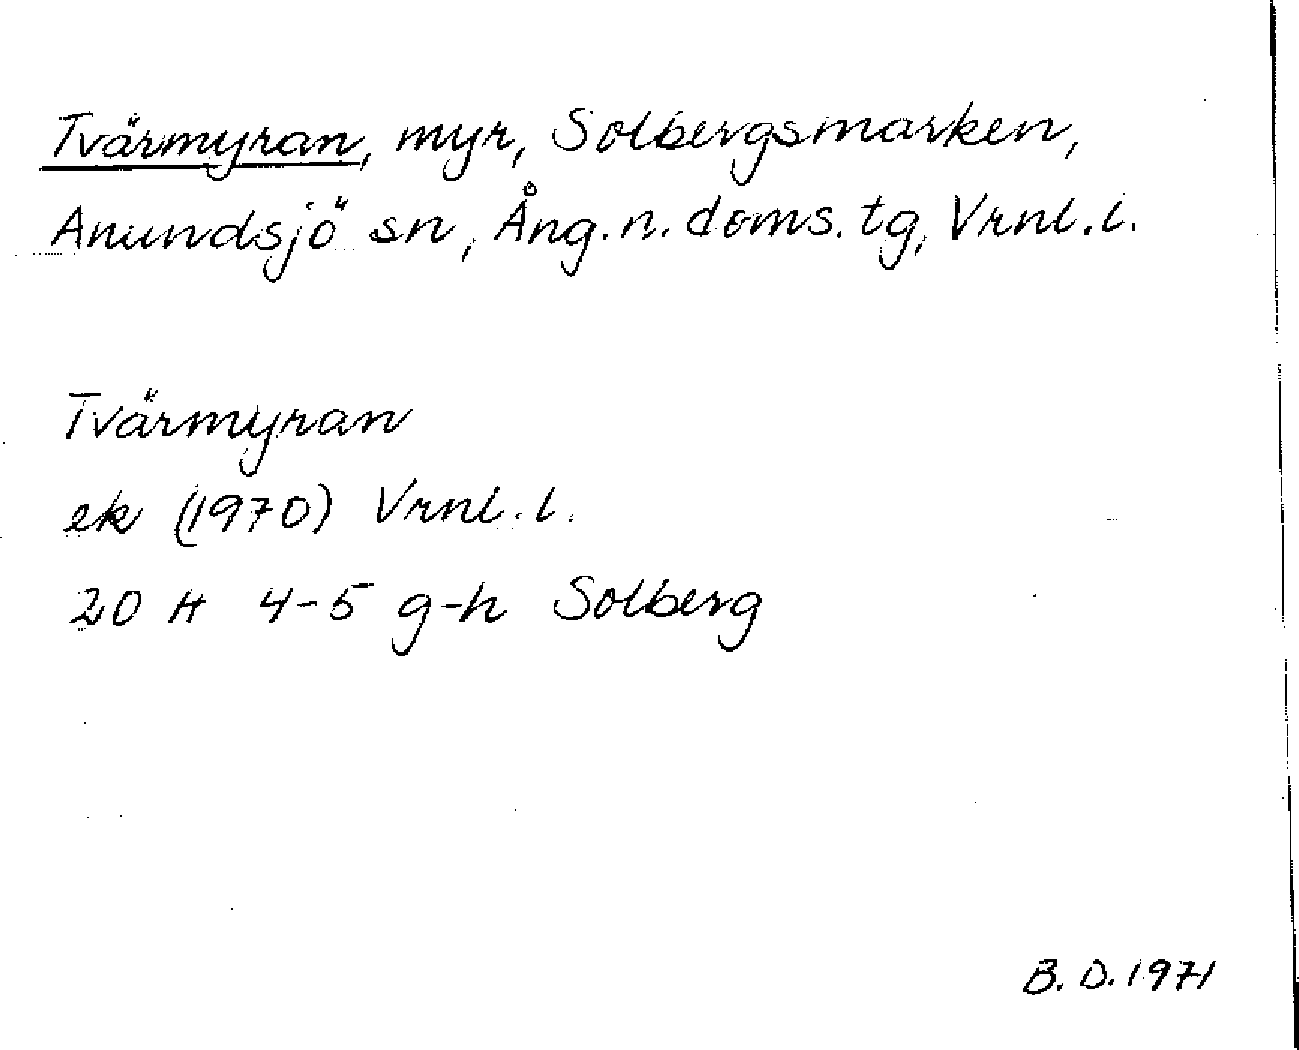 Tvärmyran, myr, Solbergsmarken,
Anundsjö sn, Ång. n. doms. tg, Vrnl. l.
Tvärmyran
ek (1970) Vrnl. l.
20 H 4-5 g-h Solberg
B. D. 1971